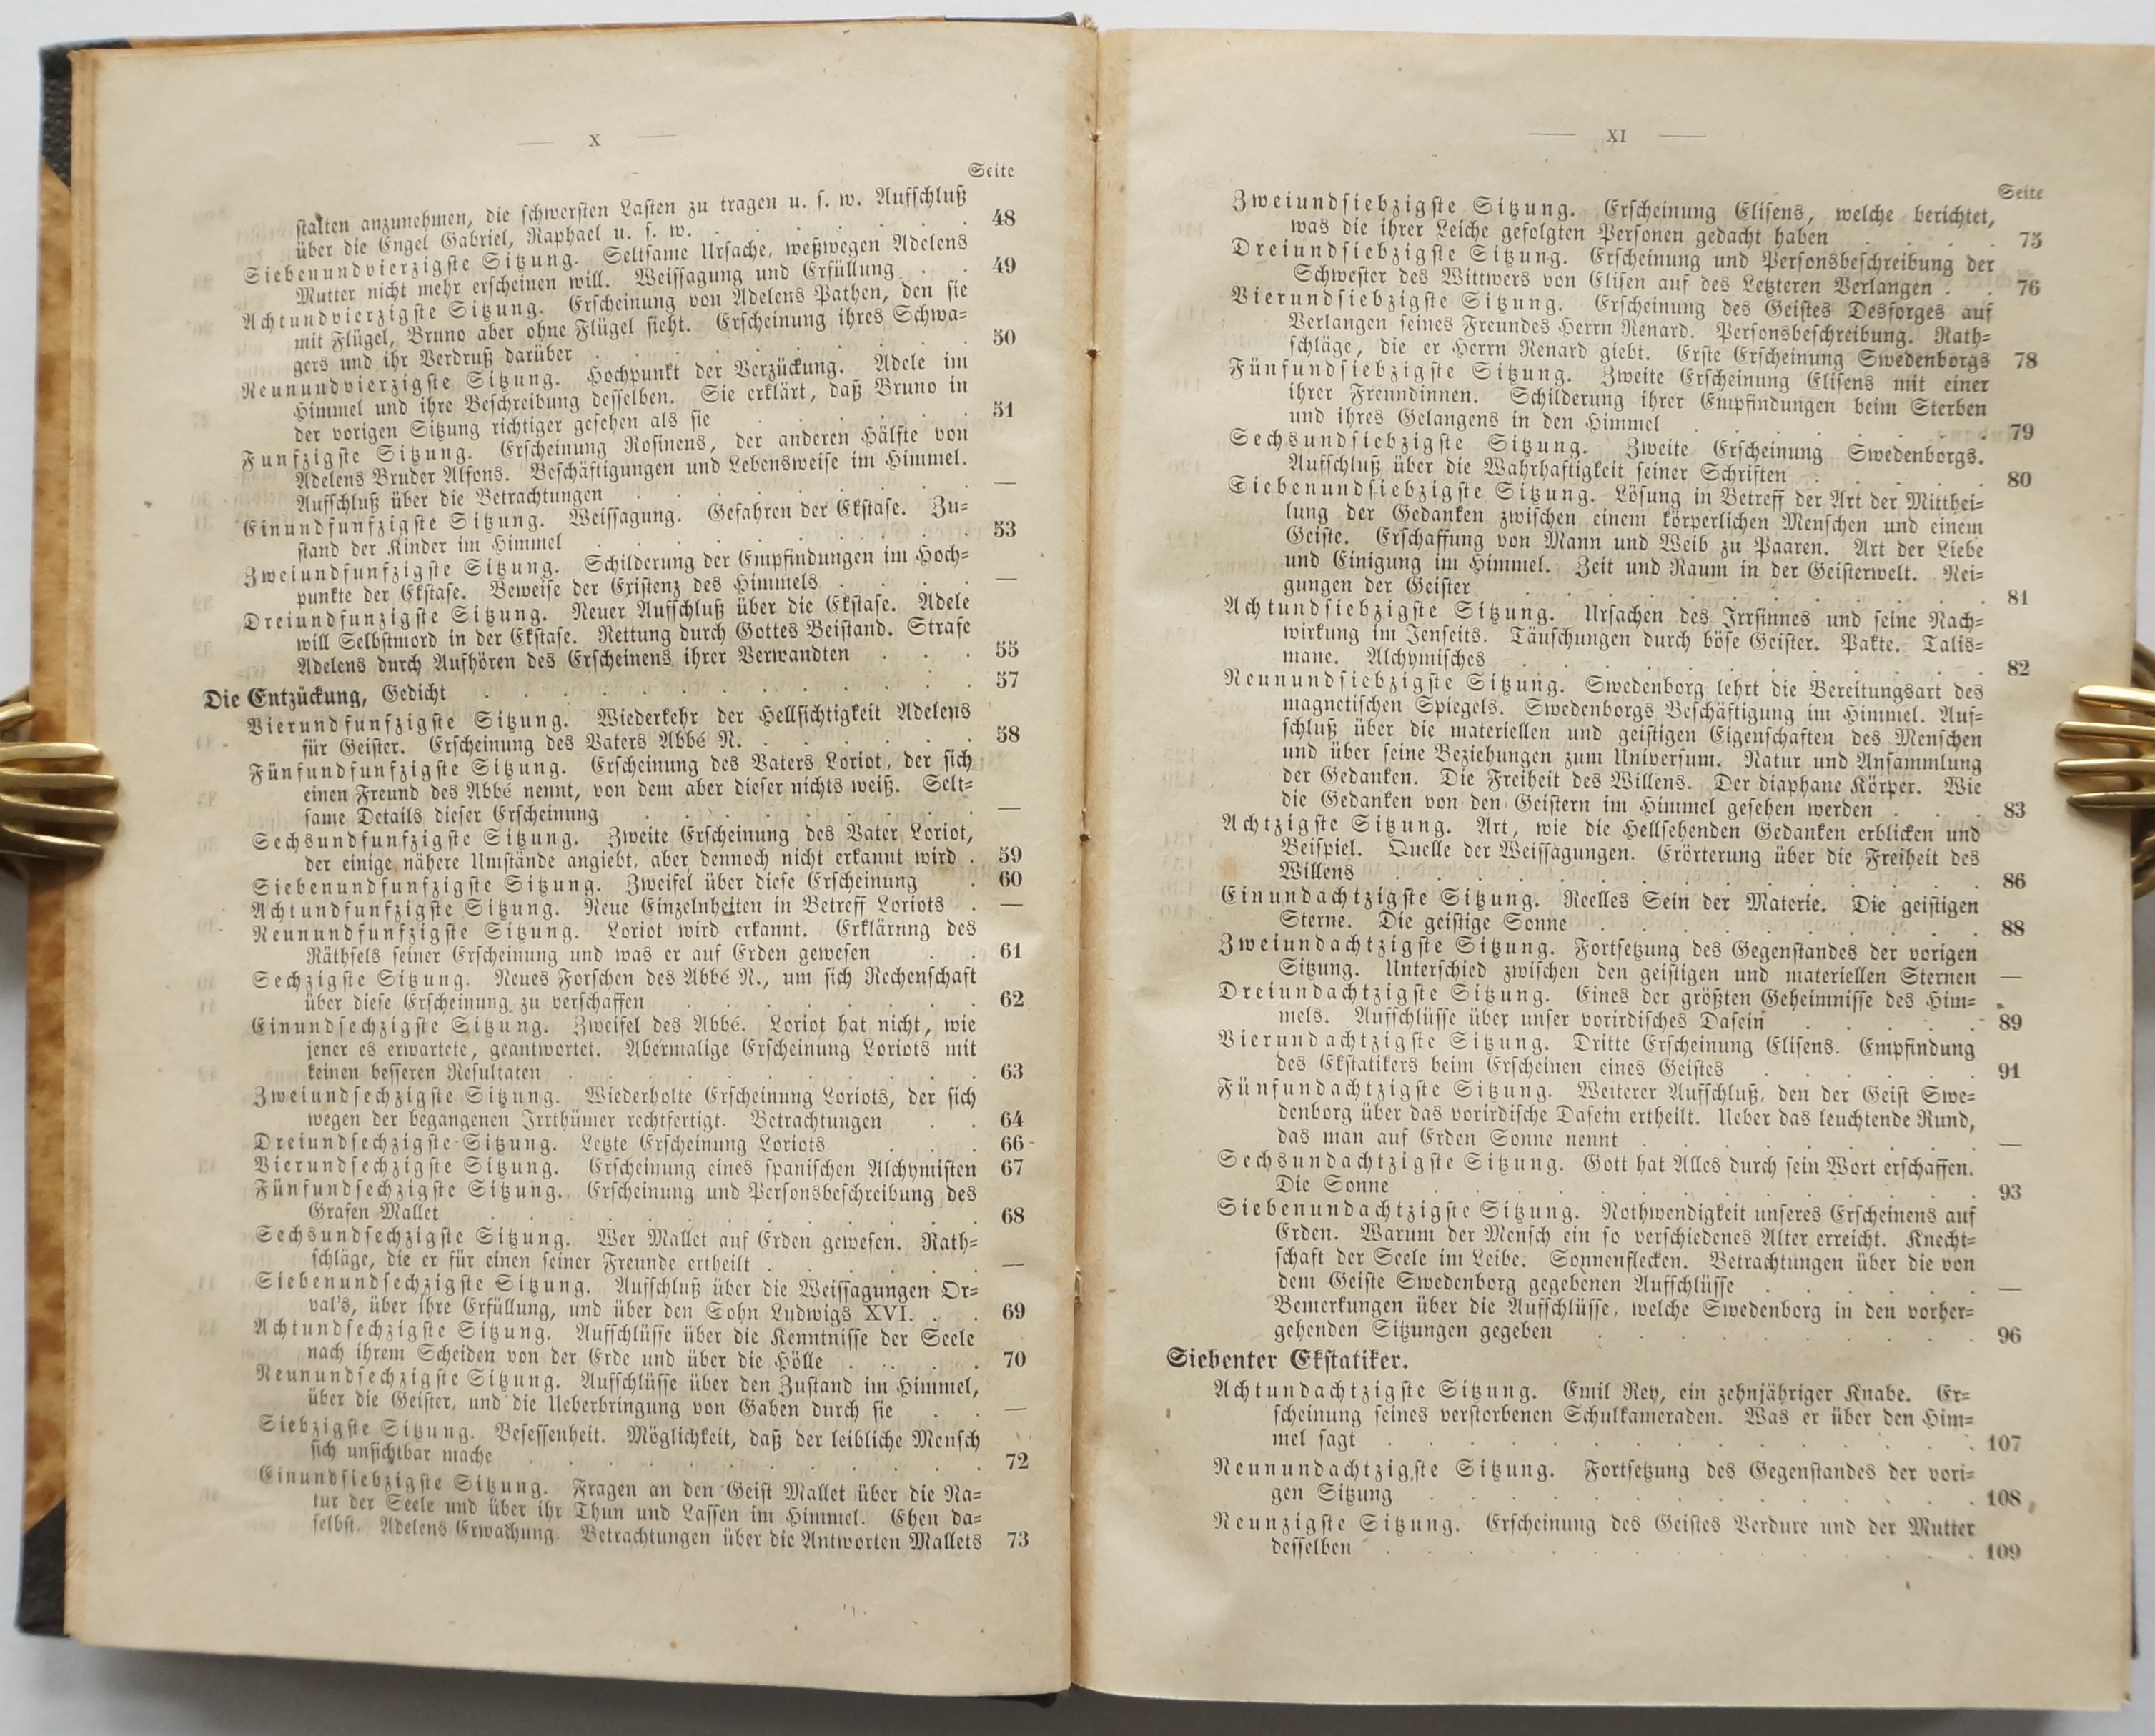 — X —
Seite
stalten anzunehmen, die schwersten Lasten zu tragen u. s. w. Aufschluß
über die Engel Gabriel, Raphael u. s. w. . . . . . . 48
Siebenundvierzigste Sitzung. Seltsame Ursache, weßwegen Adelens
Mutter nicht mehr erscheinen will. Weissagung und Erfüllung . . 49
Achtundvierzigste Sitzung. Erscheinung von Adelens Pathen, den sie
mit Flügel, Bruno aber ohne Flügel sieht. Erscheinung ihres Schwa-
gers und ihr Verdruß darüber . . . . . . . . 50
Neunundvierzigste Sitzung. Hochpunkt der Verzückung. Adele im
Himmel und ihre Beschreibung desselben. Sie erklärt, daß Bruno in
der vorigen Sitzung richtiger gesehen als sie . . . . . . 51
Funfzigste Sitzung. Erscheinung Rosinens, der anderen Hälfte von
Adelens Bruder Alfons. Beschäftigungen und Lebensweise im Himmel.
Aufschluß über die Betrachtungen . . . . . . . . —
Einundfunfzigste Sitzung. Weissagung. Gefahren der Ekstase. Zu-
stand der Kinder im Himmel . . . . . . . . 53
Zweiundfunfzigste Sitzung. Schilderung der Empfindungen im Hoch-
punkte der Ekstase. Beweise der Existenz des Himmels . . . . —
Dreiundfunzigste Sitzung. Neuer Aufschluß über die Ekstase. Adele
will Selbstmord in der Ekstase. Rettung durch Gottes Beistand. Strafe
Adelens durch Aufhören des Erscheinens ihrer Verwandten . . . 55
Die Entzückung, Gedicht . . . . . . . . . . 57
Vierundfunfzigste Sitzung. Wiederkehr der Hellsichtigkeit Adelens
für Geister. Erscheinung des Vaters Abbé N. . . . . . 58
Fünfundfunfzigste Sitzung. Erscheinung des Vaters Loriot, der sich
einen Freund des Abbé nennt, von dem aber dieser nichts weiß. Selt-
same Details dieser Erscheinung . . . . . . . . —
Sechsundfunfzigste Sitzung. Zweite Erscheinung des Vater Loriot,
der einige nähere Umstände angiebt, aber dennoch nicht erkannt wird . 59
Siebenundfunfzigste Sitzung. Zweifel über diese Erscheinung . 60
Achtundfunfzigste Sitzung. Neue Einzelnheiten in Betreff Loriots . —
Neunundfunfzigste Sitzung. Loriot wird erkannt. Erklärung des
Räthsels seiner Erscheinung und was er auf Erden gewesen . . 61
Sechzigste Sitzung. Neues Forschen des Abbé N., um sich Rechenschaft
über diese Erscheinung zu verschaffen . . . . . . . 62
Einundsechzigste Sitzung. Zweifel des Abbé. Loriot hat nicht, wie
jener es erwartete, geantwortet. Abermalige Erscheinung Loriots mit
keinen besseren Resultaten . . . . . . . . . 63
Zweiundsechzigste Sitzung. Wiederholte Erscheinung Loriots, der sich
wegen der begangenen Irrthümer rechtfertigt. Betrachtungen . . 64
Dreiundsechzigste Sitzung. Letzte Erscheinung Loriots . . . 66
Vierundsechzigste Sitzung. Erscheinung eines spanischen Alchymisten 67
Fünfundsechzigste Sitzung. Erscheinung und Personsbeschreibung des
Grafen Mallet . . . . . . . . . . . 68
Sechsundsechzigste Sitzung. Wer Mallet auf Erden gewesen. Rath-
schläge, die er für einen seiner Freunde ertheilt . . . . . —
Siebenundsechzigste Sitzung. Aufschluß über die Weissagungen Or-
val's, über ihre Erfüllung, und über den Sohn Ludwigs XVI. . . 69
Achtundsechzigste Sitzung. Aufschlüsse über die Kenntnisse der Seele
nach ihrem Scheiden von der Erde und über die Hölle . . . . 70
Neunundsechzigste Sitzung. Aufschlüsse über den Zustand im Himmel,
über die Geister, und die Ueberbringung von Gaben durch sie . . —
Siebzigste Sitzung. Besessenheit. Möglichkeit, daß der leibliche Mensch
sich unsichtbar mache . . . . . . . . . . 72
Einundsiebzigste Sitzung. Fragen an den Geist Mallet über die Na-
tur der Seele und über ihr Thun und Lassen im Himmel. Ehen da-
selbst. Adelens Erwachung. Betrachtungen über die Antworten Mallets 73
— XI —
Seite
Zweiundsiebzigste Sitzung. Erscheinung Elisens, welche berichtet,
was die ihrer Leiche gefolgten Personen gedacht haben . . . . 75
Dreiundsiebzigste Sitzung. Erscheinung und Personsbeschreibung der
Schwester des Wittwers von Elisen auf des Letzteren Verlangen . . 76
Vierundsiebzigste Sitzung. Erscheinung des Geistes Desforges auf
Verlangen seines Freundes Herrn Renard. Personsbeschreibung. Rath-
schläge, die er Herrn Renard giebt. Erste Erscheinung Swedenborgs 78
Fünfundsiebzigste Sitzung. Zweite Erscheinung Elisens mit einer
ihrer Freundinnen. Schilderung ihrer Empfindungen beim Sterben
und ihres Gelangens in den Himmel . . . . . . . 79
Sechsundsiebzigste Sitzung. Zweite Erscheinung Swedenborgs.
Aufschluß über die Wahrhaftigkeit seiner Schriften . . . . . 80
Siebenundsiebzigste Sitzung. Lösung in Betreff der Art der Mitthei-
lung der Gedanken zwischen einem körperlichen Menschen und einem
Geiste. Erschaffung von Mann und Weib zu Paaren. Art der Liebe
und Einigung im Himmel. Zeit und Raum in der Geisterwelt. Nei-
gungen der Geister . . . . . . . . . . 81
Achtundsiebzigste Sitzung. Ursachen des Irrsinnes und seine Nach-
wirkung im Jenseits. Täuschungen durch böse Geister. Pakte. Talis-
mane. Alchymisches . . . . . . . . . . 82
Neunundsiebzigste Sitzung. Swedenborg lehrt die Bereitungsart des
magnetischen Spiegels. Swedenborgs Beschäftigung im Himmel. Auf-
schluß über die materiellen und geistigen Eigenschaften des Menschen
und über seine Beziehungen zum Universum. Natur und Ansammlung
der Gedanken. Die Freiheit des Willens. Der diaphane Körper. Wie
die Gedanken von den Geistern im Himmel gesehen werden . . . 83
Achtzigste Sitzung. Art, wie die Hellsehenden Gedanken erblicken und
Beispiel. Quelle der Weissagungen. Erörterung über die Freiheit des
Willens . . . . . . . . . . . . 86
Einundachtzigste Sitzung. Reelles Sein der Materie. Die geistigen
Sterne. Die geistige Sonne . . . . . . . . 88
Zweiundachtzigste Sitzung. Fortsetzung des Gegenstandes der vorigen
Sitzung. Unterschied zwischen den geistigen und materiellen Sternen —
Dreiundachtzigste Sitzung. Eines der größten Geheimnisse des Him-
mels. Aufschlüsse über unser vorirdisches Dasein . . . . . 89
Vierundachtzigste Sitzung. Dritte Erscheinung Elisens. Empfindung
des Ekstatikers beim Erscheinen eines Geistes . . . . . . 91
Fünfundachtzigste Sitzung. Weiterer Aufschluß, den der Geist Swe-
denborg über das vorirdische Dasein ertheilt. Ueber das leuchtende Rund,
das man auf Erden Sonne nennt . . . . . . . . —
Sechsundachtzigste Sitzung. Gott hat Alles durch sein Wort erschaffen.
Die Sonne . . . . . . . . . . . 93
Siebenundachtzigste Sitzung. Nothwendigkeit unseres Erscheinens auf
Erden. Warum der Mensch ein so verschiedenes Alter erreicht. Knecht-
schaft der Seele im Leibe. Sonnenflecken. Betrachtungen über die von
dem Geiste Swedenborg gegebenen Aufschlüsse . . . . . . —
Bemerkungen über die Aufschlüsse, welche Swedenborg in den vorher-
gehenden Sitzungen gegeben . . . . . . . . . 96
Siebenter Ekstatiker.
Achtundachtzigste Sitzung. Emil Rey, ein zehnjähriger Knabe. Er-
scheinung seines verstorbenen Schulkameraden. Was er über den Him-
mel sagt . . . . . . . . . . . . 107
Neunundachtzigste Sitzung. Fortsetzung des Gegenstandes der vori-
gen Sitzung . . . . . . . . . . . 108
Neunzigste Sitzung. Erscheinung des Geistes Verdure und der Mutter
desselben . . . . . . . . . . . . 109